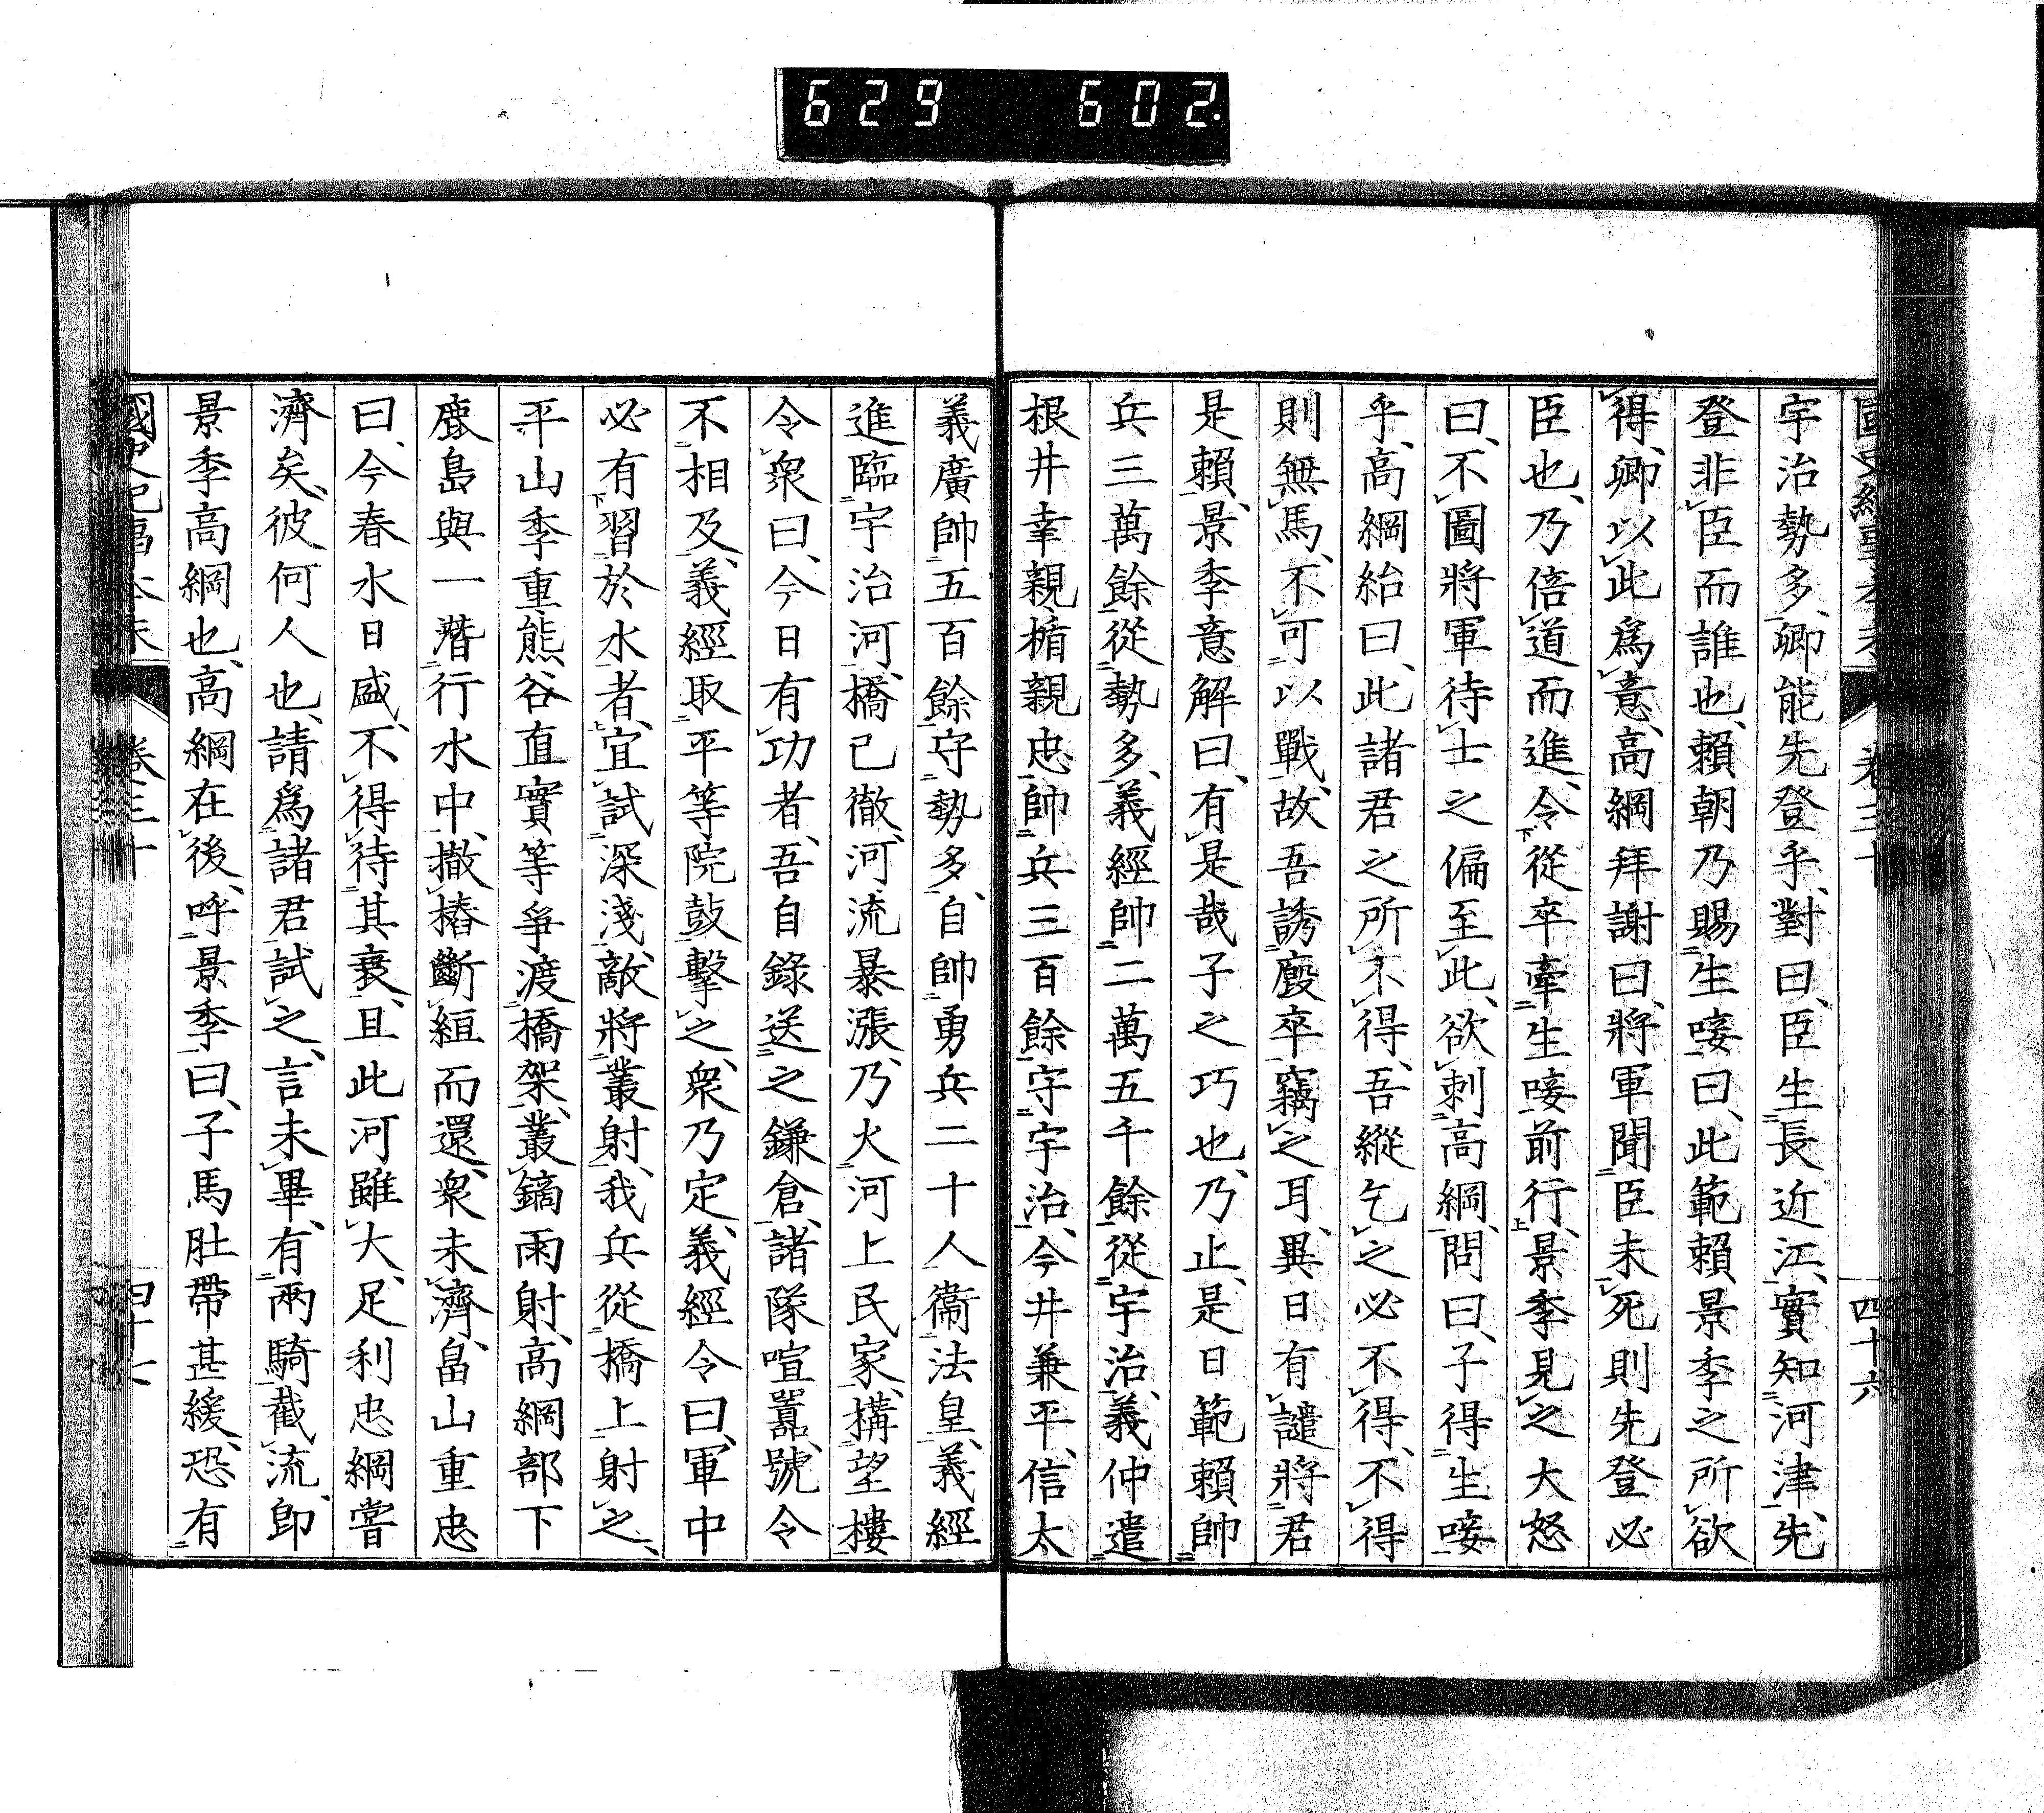 629 602.
卷三十 四十六
宇治勢多、卿能先登乎、對曰、臣生長近江、實知河津、先
登非臣而誰也、賴朝乃賜生唼曰、此範賴景季之所欲
得、卿以此爲意、高綱拜謝曰、將軍聞臣未死則先登必
臣也、乃倍道而進、令從卒牽生唼前行、景季見之大怒
曰、不圖將軍待士之偏至此、欲刺高綱、問曰、子得生唼
乎、高綱紿曰、此諸君之所不得、吾縱乞之必不得、不得
則無馬、不可以戰、故吾誘廄卒竊之耳、異日有譴將君
是賴、景季意解曰、有是哉子之巧也、乃止、是日範賴帥
兵三萬餘從勢多、義經帥二萬五千餘從宇治、義仲遣
根井幸親楯親忠帥兵三百餘守宇治、今井兼平、信太
義廣帥五百餘守勢多、自帥勇兵二十人衞法皇、義經
進臨宇治河、橋已徹、河流暴漲、乃火河上民家、構望樓
令衆曰、今日有功者、吾自錄送之鎌倉、諸隊喧囂、號令
不相及、義經取平等院鼓擊之、衆乃定、義經令曰、軍中
必有習於水者、宜試深淺、敵將叢射、我兵從橋上射之、
平山季重熊谷直實等爭渡橋架、叢鏑雨射、高綱部下
鹿島與一潛行水中、撤樁斷絙而還、衆未濟、畠山重忠
曰、今春水日盛、不得待其衰、且此河雖大、足利忠綱嘗
濟矣、彼何人也、請爲諸君試之、言未畢、有兩騎截流、卽
景季高綱也、高綱在後、呼景季曰、子馬肚帶甚緩、恐有
國史紀事本末 卷三十 四十七